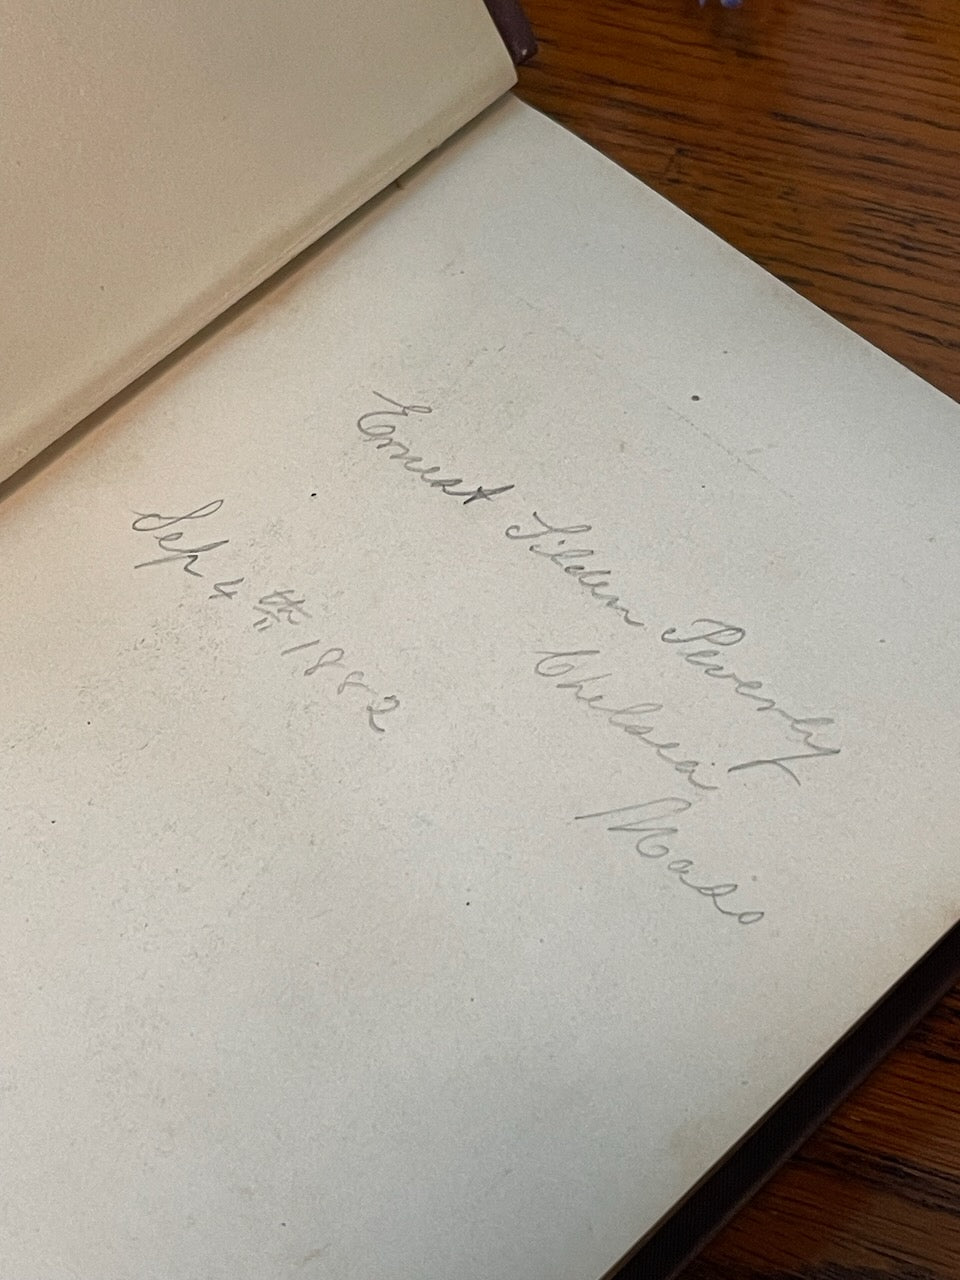 Ernest Tilden Peverly
Chelsea
Mass
Sep 4th 1882